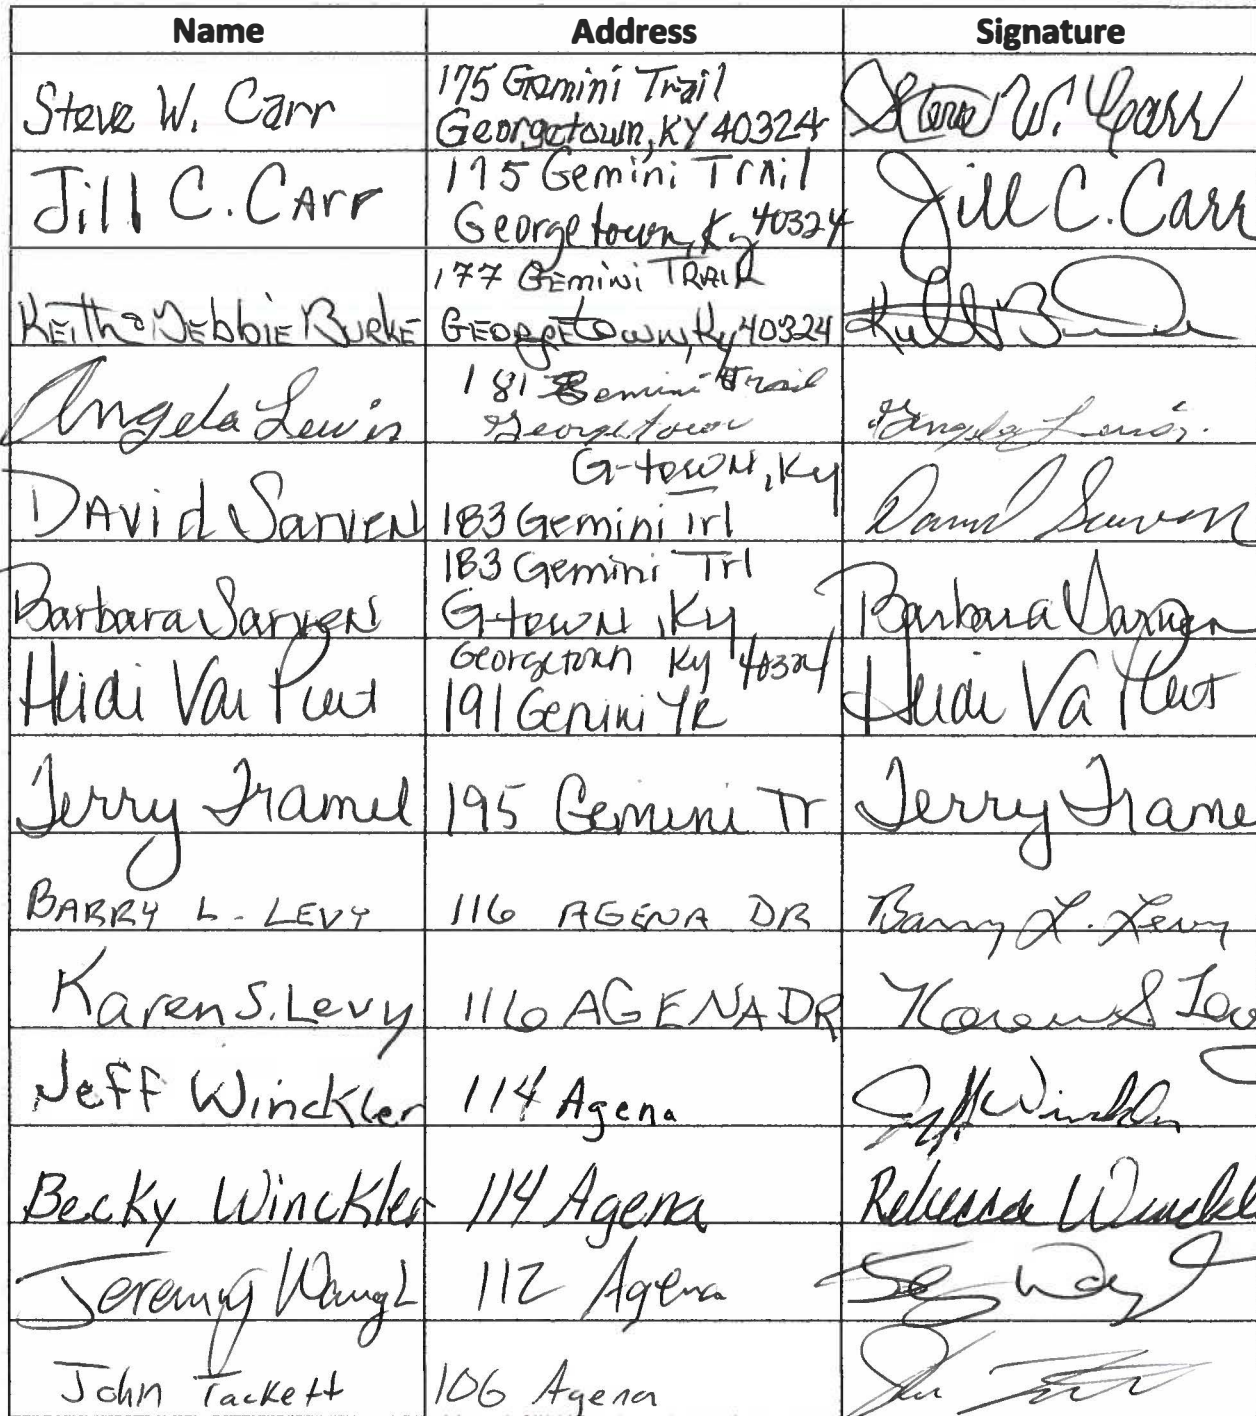 Name Address Signature
Steve W. Carr 175 Gemini Trail
Georgetown, KY 40324 Steve W. Carr
Jill C. CArr 175 Gemini TrAil
Georgetown, Ky 40324 Jill C. Carr
177 GEMINI TRAIL
KEITH & DEbbIE BURKE GEORGETOwn, Ky 40324
Angela Lewis 181 Gemini Trail
Georgetown Angela Lewis
G-towN, Ky
DAVid SarvEN 183 Gemini Trl David Sarven
183 Gemini Trl
Barbara SarvEN G-towN, Ky Barbara Sarven
Georgetown Ky 40324
Heidi 191 Gemini TR Heidi
Terry Framel 195 Gemini Tr Terry Frame
BARRY L. LEVY 116 AGENA DR Barry L. Levy
Karen S. Levy 116 AGENA DR Karen S. Lev
Jeff Winckler 114 Agena Jeff Winckler
Becky Winckler 114 Agena Rebecca Winckle
Jeremy 112 Agena
John Tackett 106 Agena